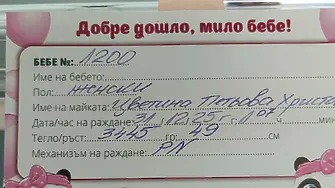 Добре дошло, мило бебе!
БЕБЕ №: 1200
Име на бебето:
Пол: женски
Име на майката: Цветина Петрова Христо
Дата/час на раждане: 31.12.25 г. 1 07
Тегло/ръст: 3445 гр: 49 см
Механизъм на раждане: PN